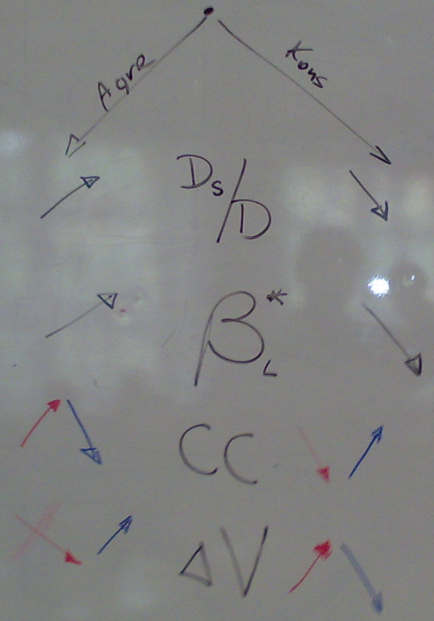 Agre Kons
Ds/D
β*L
CC
ΔV